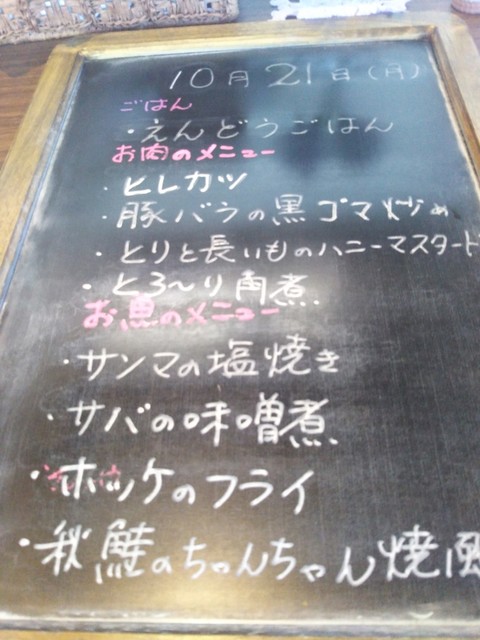 10月21日(月)
ごはん
・えんどうごはん
お肉のメニュー
・ヒレカツ
・豚バラの黒ゴマ炒め
・とりと長いものハニーマスタード
・とろ〜り角煮
お魚のメニュー
・サンマの塩焼き
・サバの味噌煮
・ホッケのフライ
・秋鮭のちゃんちゃん焼風